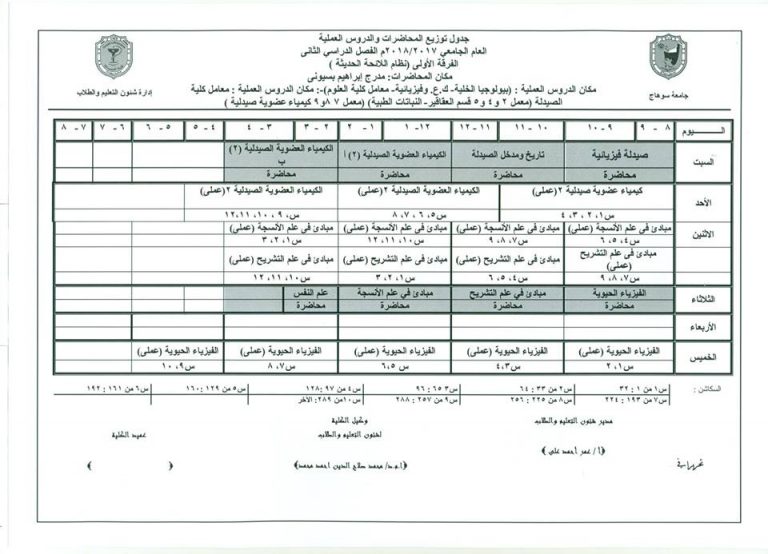 جدول توزيع المحاضرات والدروس العملية
العام الجامعي ٢٠١٨/٢٠١٧م الفصل الدراسي الثانى
الفرقة الأولى (نظام اللائحة الحديثة )
مكان المحاضرات: مدرج إبراهيم بسيونى
مكان الدروس العملية : (بيولوجيا الخلية- ك.ع. وفيزيائية- معامل كلية العلوم)-: مكان الدروس العملية : معامل كلية
الصيدلة (معمل ٢ و ٤ و ٥ قسم العقاقير- النباتات الطبية) (معمل ٧ ٨ و ٩ كيمياء عضوية صيدلية )
جامعة سوهاج
إدارة شئون التعليم والطلاب
اليـــوم ٨ - ٩ ٩ - ١٠ ١٠ - ١١ ١١ - ١٢ ١٢ - ١ ١ - ٢ ٢ - ٣ ٣ - ٤ ٤ - ٥ ٥ - ٦ ٦ - ٧ ٧ - ٨
السبت صيدلة فيزيائية تاريخ ومدخل الصيدلة الكيمياء العضوية الصيدلية (٢) أ الكيمياء العضوية الصيدلية (٢) ب
محاضرة محاضرة محاضرة محاضرة
الأحد كيمياء عضوية صيدلية ٢ (عملى) الكيمياء العضوية الصيدلية ٢ (عملى) الكيمياء العضوية الصيدلية ٢ (عملى)
س ١، ٢، ٣، ٤ س ٥، ٦، ٧، ٨ س ٩، ١٠، ١١، ١٢
الاثنين مبادئ فى علم الأنسجة (عملى) مبادئ فى علم الأنسجة (عملى) مبادئ فى علم الأنسجة (عملى) مبادئ فى علم الأنسجة (عملى)
س ٤، ٥، ٦ س ٧، ٨، ٩ س ١٠، ١١، ١٢ س ١، ٢، ٣
مبادئ فى علم التشريح (عملى) مبادئ فى علم التشريح (عملى) مبادئ فى علم التشريح (عملى) مبادئ فى علم التشريح (عملى)
س ٧، ٨، ٩ س ٤، ٥، ٦ س ١، ٢، ٣ س ١٠، ١١، ١٢
الثلاثاء الفيزياء الحيوية مبادئ في علم التشريح مبادئ في علم الأنسجة علم النفس
محاضرة محاضرة محاضرة محاضرة
الأربعاء
الخميس الفيزياء الحيوية (عملى) الفيزياء الحيوية (عملى) الفيزياء الحيوية (عملى) الفيزياء الحيوية (عملى) الفيزياء الحيوية (عملى)
س ١، ٢ س ٣، ٤ س ٥، ٦ س ٧، ٨ س ٩، ١٠
السكاشن : س ١ من ١ : ٣٢ س ٢ من ٣٣ : ٦٤ س ٣ ٦٥ : ٩٦ س ٤ من ٩٧ :١٢٨ س ٥ من ١٢٩ :١٦٠ س ٦ من ١٦١ : ١٩٢
س ٧ من ١٩٣ : ٢٢٤ س ٨ من ٢٢٥ : ٢٥٦ س ٩ من ٢٥٧ : ٢٨٨ س ١٠ من ٢٨٩: الآخر
مدير شئون التعليم والطلاب وكيل الكلية عميد الكلية
لشئون التعليم والطلاب
(أ / عمر أحمد على ) (ا.م.د/ محمد صلاح الدين احمد محمد) ( )